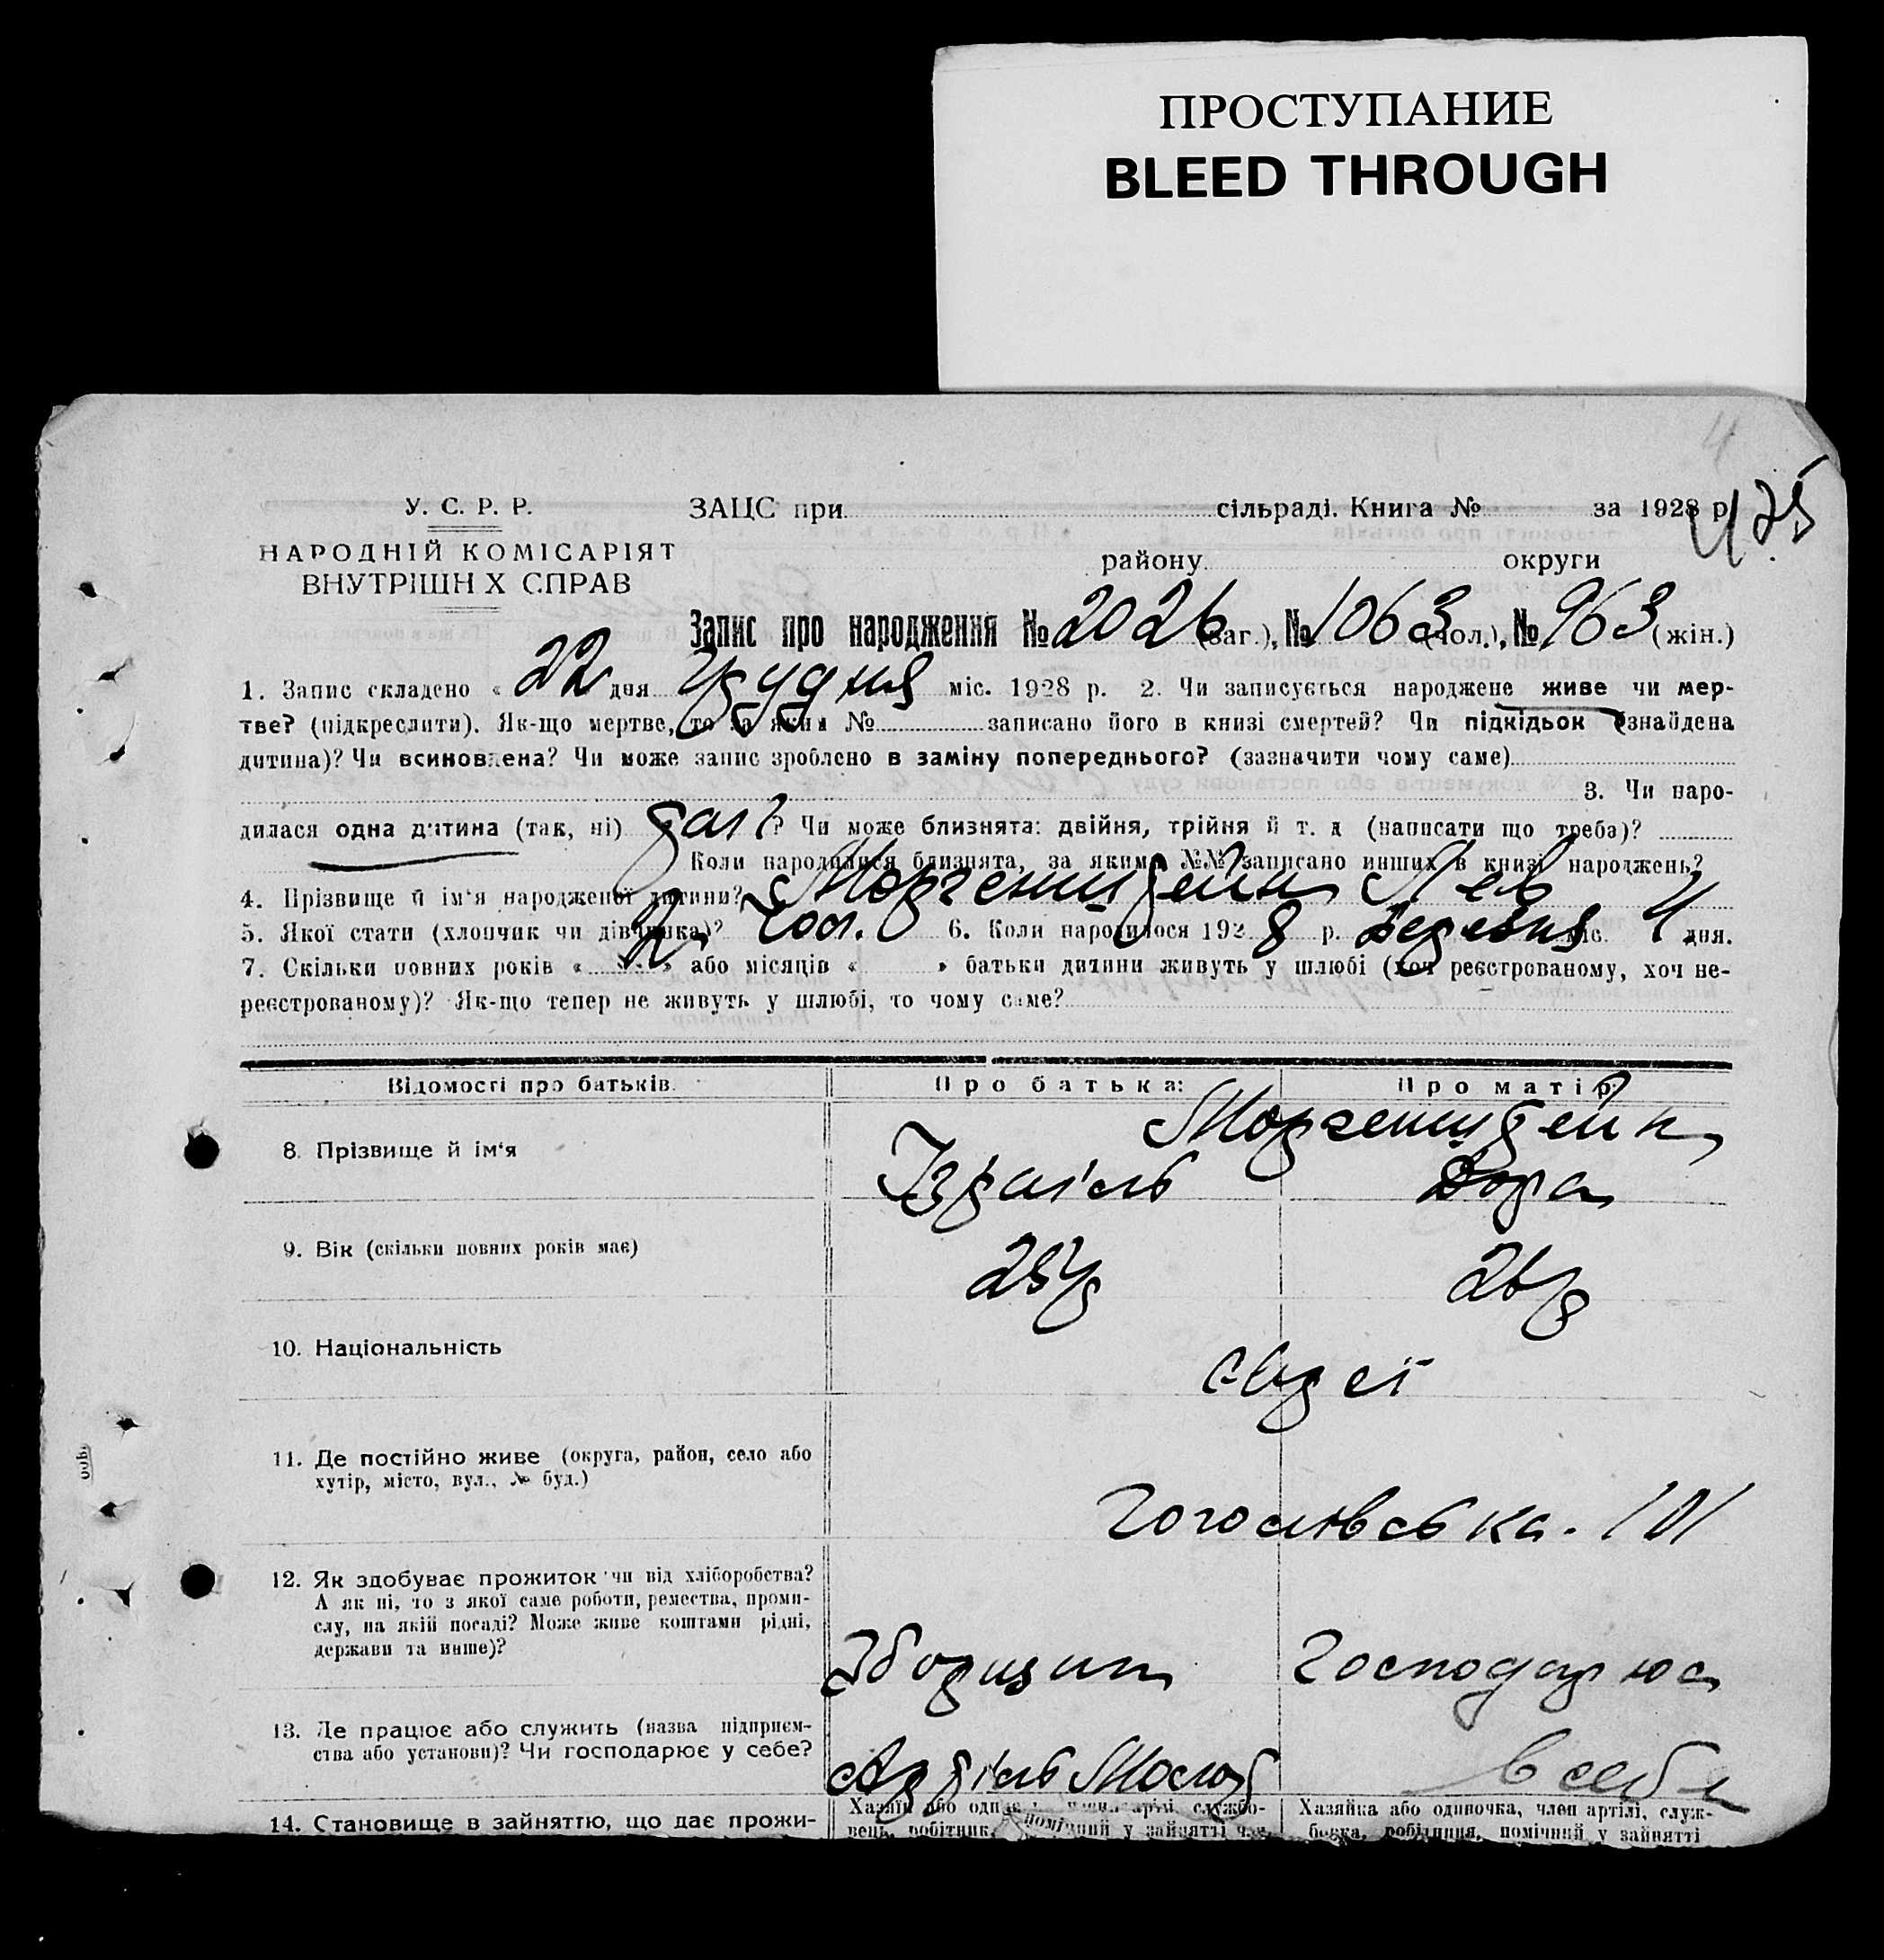 ПРОСТУПАНИЕ
BLEED THROUGH
4
425
У. С. Р. Р.
ЗАЦС при сільраді. Книга № за 1928 р.
НАРОДНІЙ КОМІСАРІЯТ
ВНУТРІШН Х СПРАВ
району округи
Запис про народження № 2026 (заг.), № 1063 (чол.), № 963 (жін.)
1. Запис складено « 22 дня Грудня міс. 1928 р. 2. Чи записується народжене живе чи мер-
тве? (підкреслити). Як-що мертве, то за яким № записано його в книзі смертей? Чи підкідьок (знайдена
дитина)? Чи всиновлена? Чи може запис зроблено в заміну попереднього? (зазначити чому саме)
3. Чи наро-
дилася одна дитина (так, ні) ? Чи може близнята: двійня, трійня й т. д (написати що треба)?
Коли народилися близнята, за якими №№ записано инших в книзі народжень?
4. Прізвище й ім'я народженої дитини? Моргенштейн Лев
5. Якої стати (хлопчик чи дівчинка)? Чол. 6. Коли народилося 1928 р. Березня міс. 4 дня.
7. Скільки повних років « » або місяців « » батьки дитини живуть у шлюбі (хоч реєстрованому, хоч не-
реєстрованому)? Як-що тепер не живуть у шлюбі, то чому саме?
Відомості про батьків. Про батька: Про матір:
Моргенштейн
8. Прізвище й ім'я Ізраїль Дора
9. Вік (скільки повних років має) 28 р 26 р
10. Національність Євреї
11. Де постійно живе (округа, район, село або
хутір, місто, вул., № буд.)
Гоголівська. 101
12. Як здобуває прожиток чи від хліборобства?
А як ні, то з якої саме роботи, ремества, проми-
слу, на якій посаді? Може живе коштами рідні,
держави та инше)?
Зборщик Господарює
13. Де працює або служить (назва підприєм-
ства або установи)? Чи господарює у себе?
Артіль в себе
14. Становище в зайняттю, що дає прожи-
Хазяїн або один арті, службо-
вець, робітник, помічний у зайнятті
Хазяйка або одиночка, член артілі, служ-
бовка, робітниця, помічний у зайнятті